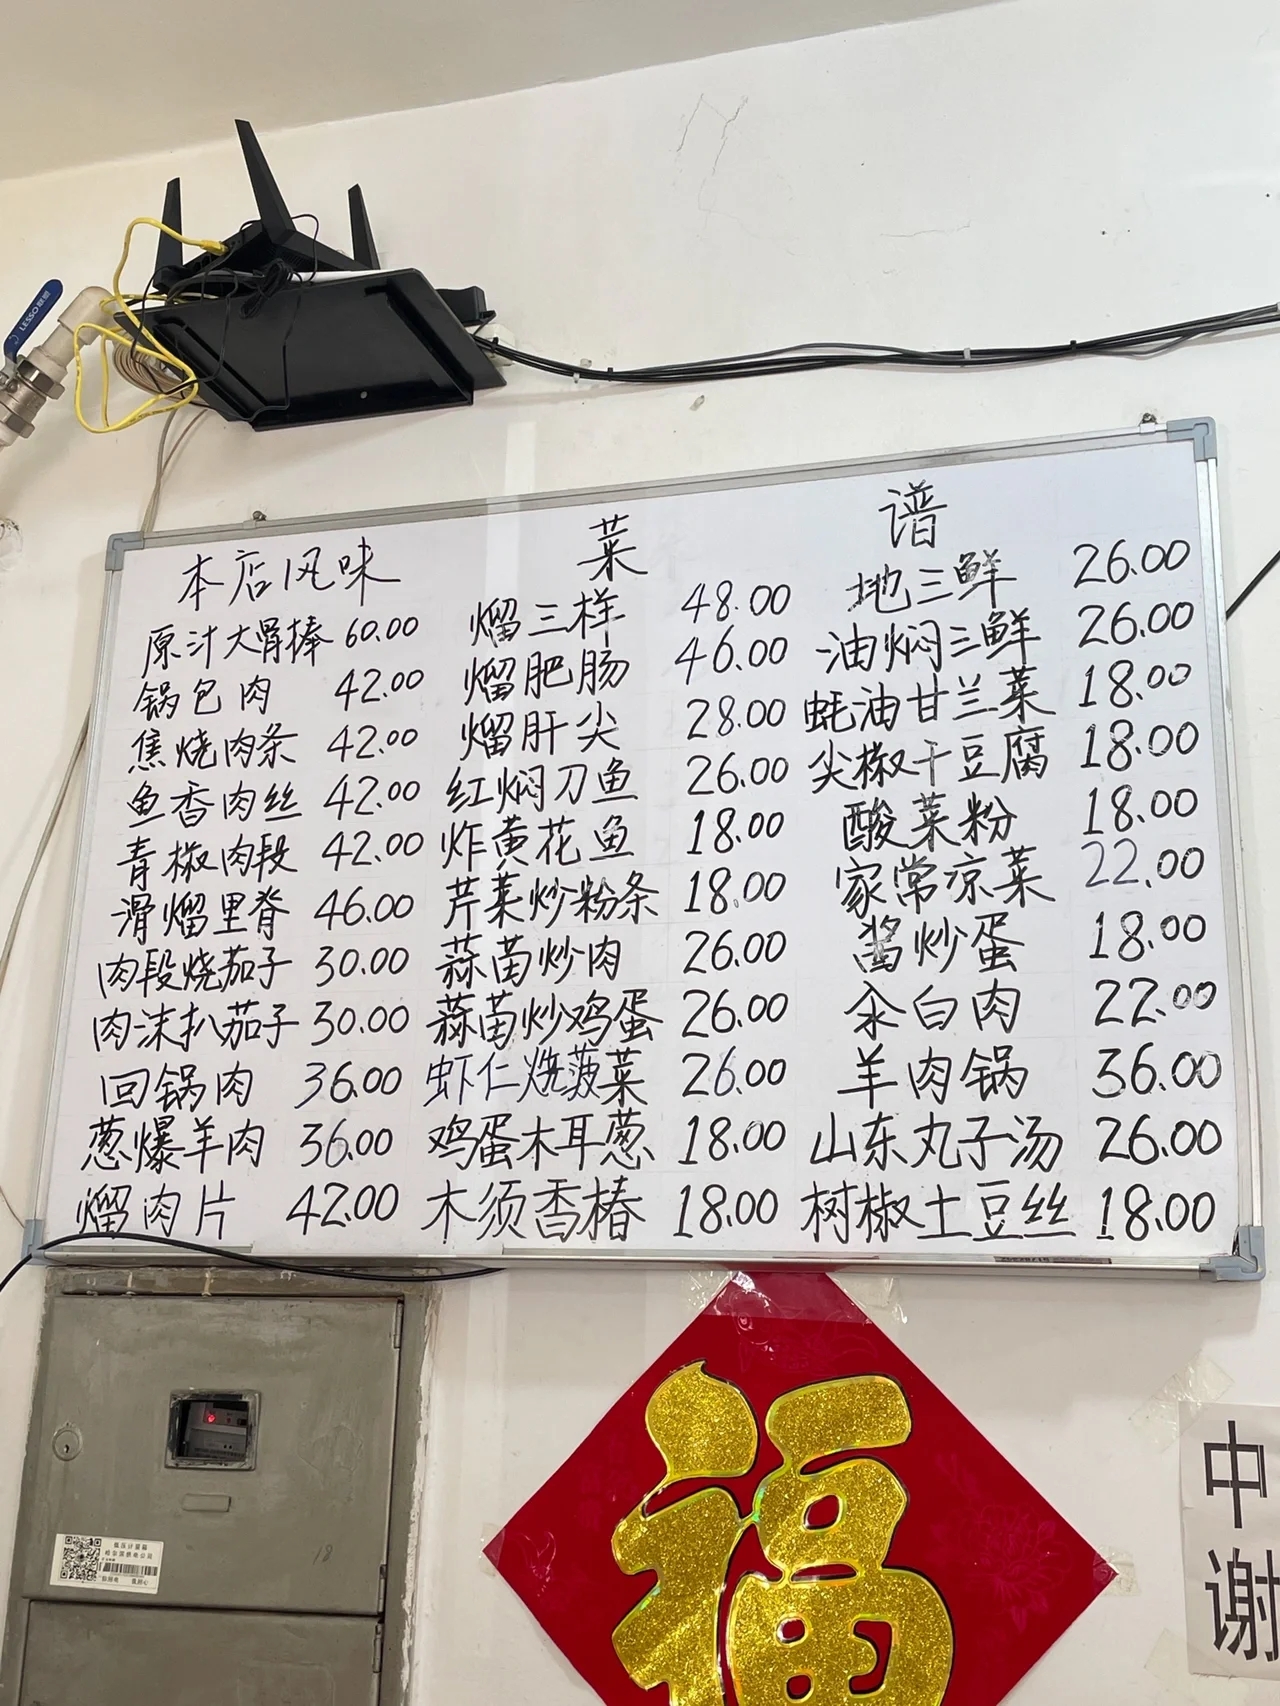 LESSO 联塑
菜 谱
本店风味
原汁大骨棒 60.00
锅包肉 42.00
焦烧肉条 42.00
鱼香肉丝 42.00
青椒肉段 42.00
滑熘里脊 46.00
肉段烧茄子 30.00
肉沫扒茄子 30.00
回锅肉 36.00
葱爆羊肉 36.00
熘肉片 42.00
熘三样 48.00
熘肥肠 46.00
熘肝尖 28.00
红焖刀鱼 26.00
炸黄花鱼 18.00
芹菜炒粉条 18.00
蒜苗炒肉 26.00
蒜苗炒鸡蛋 26.00
虾仁烧菠菜 26.00
鸡蛋木耳葱 18.00
木须香椿 18.00
地三鲜 26.00
油焖三鲜 26.00
蚝油甘兰菜 18.00
尖椒干豆腐 18.00
酸菜粉 18.00
家常凉菜 22.00
酱炒蛋 18.00
汆白肉 22.00
羊肉锅 36.00
山东丸子汤 26.00
树椒土豆丝 18.00
福
中
谢
18